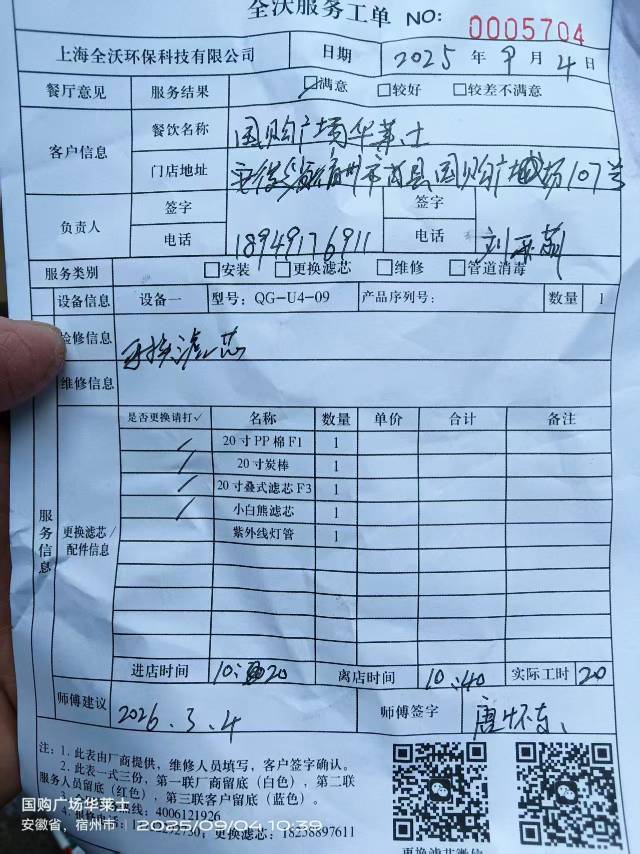 全沃服务工单 NO: 0005704
上海全沃环保科技有限公司 日期 2025 年 9 月 4 日
餐厅意见 服务结果 ☑满意 □较好 □较差不满意
客户信息 餐饮名称 国购广场华莱士
门店地址 安徽省宿州市萧县国购广场107号
负责人 签字 签字
电话 18949176911 电话
服务类别 □安装 □更换滤芯 □维修 □管道消毒
设备信息 设备一 型号: QG-U4-09 产品序列号: 数量 1
检修信息 更换滤芯
维修信息
服务信息 更换滤芯/配件信息
是否更换请打✓ 名称 数量 单价 合计 备注
✓ 20寸PP棉F1 1
✓ 20寸炭棒 1
✓ 20寸叠式滤芯F3 1
✓ 小白熊滤芯 1
紫外线灯管 1
进店时间 10:20 离店时间 10:40 实际工时 20
师傅建议 2026.3.4 师傅签字 唐怀东
注: 1. 此表由厂商提供，维修人员填写，客户签字确认。
2. 此表一式三份，第一联厂商留底（白色），第二联
服务人员留底（红色），第三联客户留底（蓝色）。
热线: 4006121926
更换滤芯: 18238897611
更换滤芯微信
国购广场华莱士
安徽省，宿州市 2025/09/04 10:39